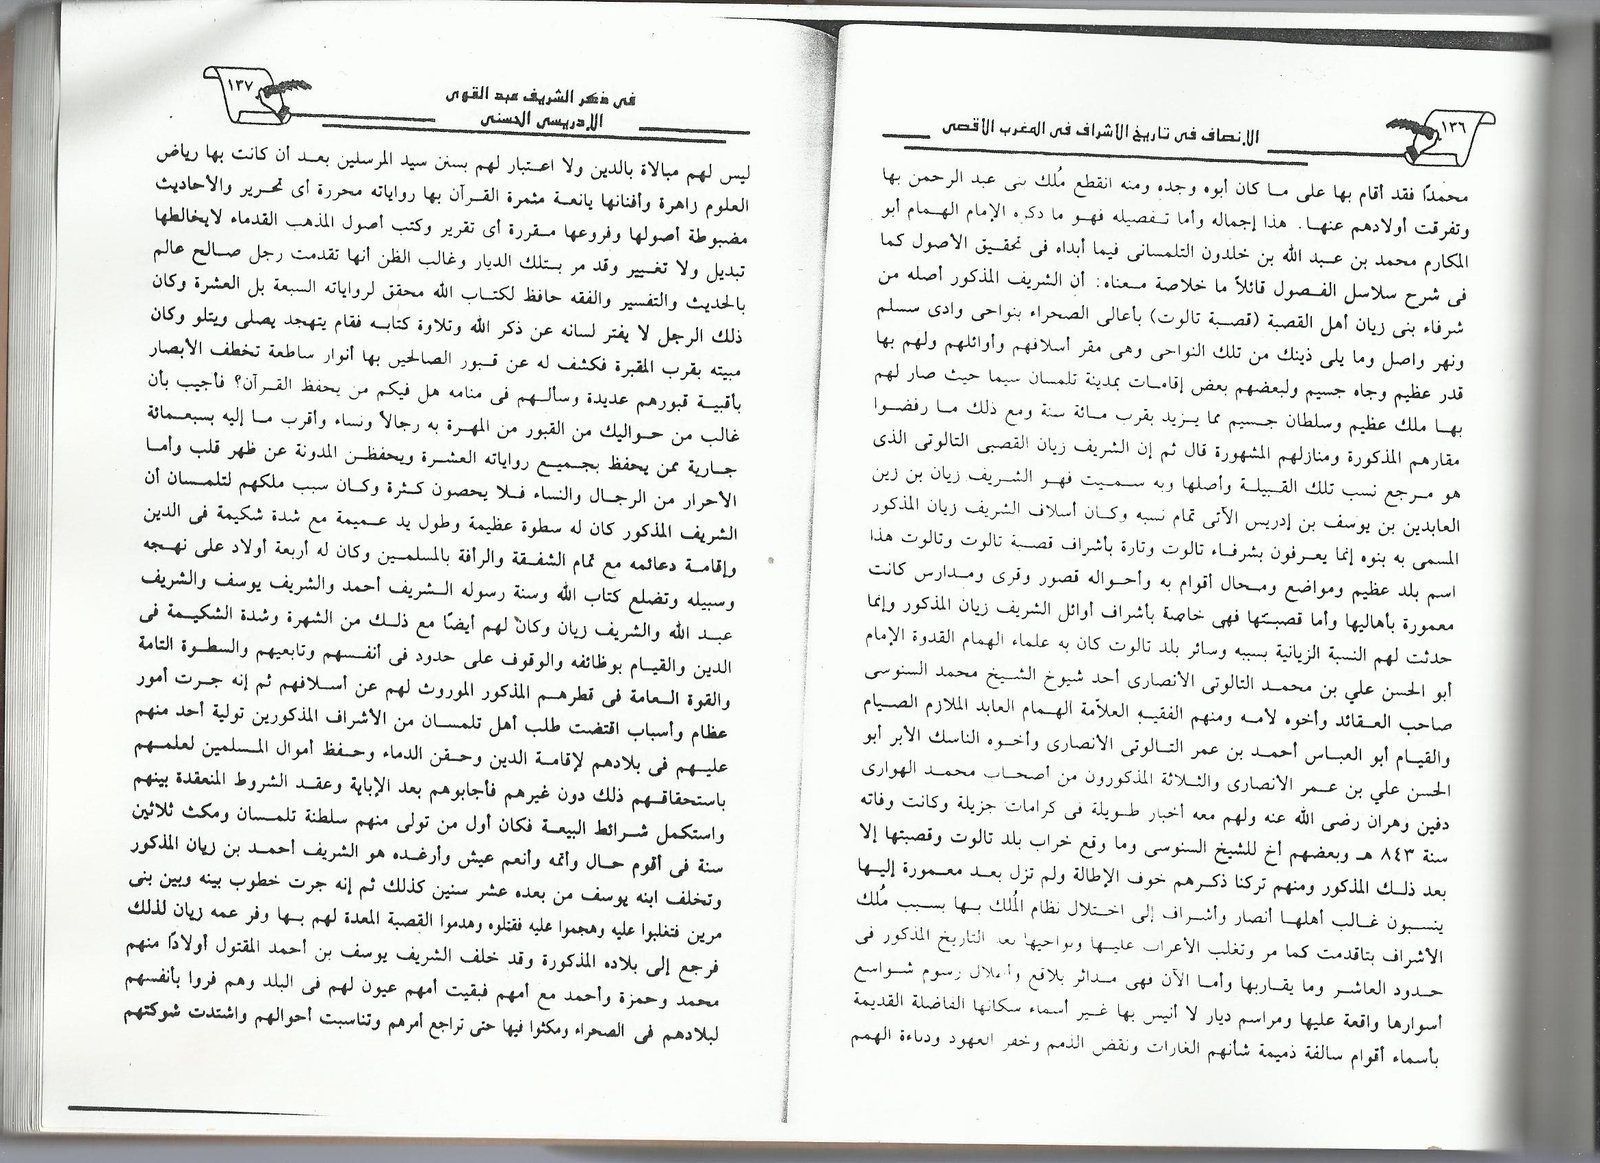 ١٣٦
الإنصاف فى تاريخ الأشراف فى المغرب الأقصى
محمدًا فقد أقام بها على مـا كان أبوه وجده ومنه انقطع مُلك بنى عبد الرحمن بها
وتفرقت أولادهم عنهـا. هذا إجماله وأما تـفصيله فهـو ما ذكره الإمام الهـمام أبو
المكارم محمد بن عـبد الله بن خلدون التلمسانى فيما أبداه فى تحقيق الأصول كما
فى شرح سلاسل الفـصول قائلاً ما خلاصة مـعناه: أن الشريف المذكور أصله من
شرفاء بنى زيان أهل القصبة (قصـبة تالوت) بأعالى الصحراء بنواحى وادى سسلم
ونهر واصل وما يلى ذينك من تلك النواحى وهى مقر أسلافهم وأوائلهم ولهم بها
قدر عظيم وجاه جسيم ولبعضهم بعض إقامـات بمدينة تلمسان سيما حيث صار لهم
بهـا ملك عظيم وسلطان جـسيم مما يـزيد بقرب مـائة سنة ومع ذلك مـا رفضـوا
مقارهم المذكورة ومنازلهم المشهورة قال ثم إن الشريف زيان القصبى التالوتى الذى
هو مـرجع نسب تلك القـبيلة وأصلها وبه سـميت فهـو الشـريف زيان بن زين
العابدين بن يوسف بن إدريس الآتى تمام نسبه وكـان أسلاف الشريف زيان المذكور
المسمى به بنوه إنما يعـرفون بشرفـاء تالوت وتارة بأشراف قصـبة تالوت وتالوت هذا
اسم بلد عظيم ومواضع ومـحال أقوام به وأحـواله قصور وقرى ومـدارس كانت
معمورة بأهاليها وأما قصبـتها فهى خاصة بأشراف أوائل الشريف زيان المذكور وإنما
حدثت لهم النسبة الزيانية بسببه وسائر بلد تالوت كان به علماء الهمام القدوة الإمام
أبو الحسن علي بن محمـد التالوتى الأنصارى أحد شيوخ الشـيخ محمد السنوسى
صاحب العـقائد وأخوه لأمـه ومنهم الفقيـه العلاّمة الهـمام العابد الملازم الصـيام
والقيام أبو العباس أحمـد بن عمر التـالوتى الأنصارى وأخـوه الناسك الأبر أبو
الحسن علي بن عـمر الأنصارى والثـلاثة المذكورون من أصحـاب محمـد الهوارى
دفين وهران رضى الله عنه ولهم معه أخبار طـويلة فى كرامات جزيلة وكانت وفاته
سنة ٨٤٣ هـ وبعضهم أخ للشيخ السنوسى وما وقع خراب بلد تالوت وقصبتها إلا
بعد ذلـك المذكور ومنهم تركنا ذكـرهم خوف الإطالة ولم تزل بعـد معـمورة إليـها
ينسـبون غـالب أهلهـا أنصار وأشـراف إلى اخـتلال نظام المُلك بـها بسـبب مُلك
الأشراف بتاقدمت كما مر وتغلب الأعراب عليـها ونواحيها بعد التاريخ المذكور فى
حدود العاشـر وما يقـاربها وأمـا الآن فهى مـدائر بلاقع وأطلال رسوم شـواسع
أسوارها واقعة عليها ومراسم ديار لا أنيس بها غـير أسماء سكانها الفاضلة القديمة
بأسماء أقوام سالفة ذميمة شأنهم الغارات ونقض الذمم وخفر العهود ودناءة الهمم
١٣٧
فى ذكر الشريف عبد القوى
الإدريسى الحسنى
ليس لهم مبالاة بالدين ولا اعتبار لهم بسنن سيد المرسلين بعـد أن كانت بها رياض
العلوم زاهرة وأفنانها يانعـة مثمرة القـرآن بها رواياته محررة أى تحـرير والأحاديث
مضبوطة أصولها وفروعها مـقررة أى تقرير وكتب أصول المذهب القدماء لايخالطها
تبديل ولا تغـيير وقد مر بـتلك الديار وغالب الظن أنها تقدمت رجل صـالح عالم
بالحديث والتفسير والفقه حافظ لكتـاب الله محقق لرواياته السبعة بل العشرة وكان
ذلك الرجل لا يفتر لسانه عن ذكر الله وتلاوة كتابـه فقام يتهجد يصلى ويتلو وكان
مبيته بقرب المقبرة فكشف له عن قـبور الصالحين بها أنوار ساطعة تخطف الأبصار
بأقبيـة قبورهم عديدة وسألـهم فى منامه هل فيكم من يحفظ القـرآن؟ فأجيب بأن
غالب من حـواليك من القبور من المهـرة به رجالاً ونساء وأقرب مـا إليه بسبعـمائة
جـارية ممن يحفظ بجمـيع رواياته العشـرة ويحفظـن المدونة عن ظهر قلب وأمـا
الأحرار من الرجـال والنساء فـلا يحصون كـثرة وكـان سبب ملكهم لتلمـسان أن
الشـريف المذكور كان له سطوة عظيمة وطول يد عـميمة مع شدة شكيمة فى الدين
وإقامـة دعائمه مع تمام الشفـقة والرأفة بالمسلمـين وكان له أربعة أولاد على نهـجه
وسبيله وتضلع كتاب الله وسنة رسوله الـشريف أحمد والشريف يوسف والشريف
عبـد الله والشريف زيان وكان لهم أيضًا مع ذلـك من الشهرة وشدة الشكيـمة فى
الدين والقيـام بوظائفه والوقوف على حدود فى أنفـسهم وتابعيهم والسطـوة التامة
والقوة الـعامة فى قطرهـم المذكور الموروث لهم عن أسـلافهم ثم إنه جـرت أمور
عظام وأسباب اقتضت طلب أهل تلمسـان من الأشراف المذكورين تولية أحد منهم
عليـهم فى بلادهم لإقامـة الدين وحـقن الدماء وحـفظ أموال المـسلمين لعلمـهم
باستحقاقـهم ذلك دون غيرهم فأجابوهم بعد الإباية وعقـد الشروط المنعقدة بينهم
واستكمل شـرائط البيعـة فكان أول من تولى منهم سلطنة تلمـسان ومكث ثلاثين
سنة فى أقوم حـال وأتمه وأنعم عيش وأرغـده هو الشريف أحمـد بن زيان المذكور
وتخلف ابنه يوسف من بعده عشر سنين كذلك ثم إنه جرت خطوب بينه وبين بنى
مرين فتغلبوا عليه وهجموا عليه فقتلوه وهدموا القصبة المعدة لهم بـها وفر عمه زيان لذلك
فرجع إلى بلاده المذكورة وقد خلف الشريف يوسف بن أحمد المقتول أولادًا منهم
محمد وحمزة وأحمد مع أمهم فبقيت أمهم عيون لهم فى البلد وهم فروا بأنفسهم
لبلادهم فى الصحراء ومكثوا فيها حتى تراجع أمرهم وتناسبت أحوالهم واشتدت شوكتهم